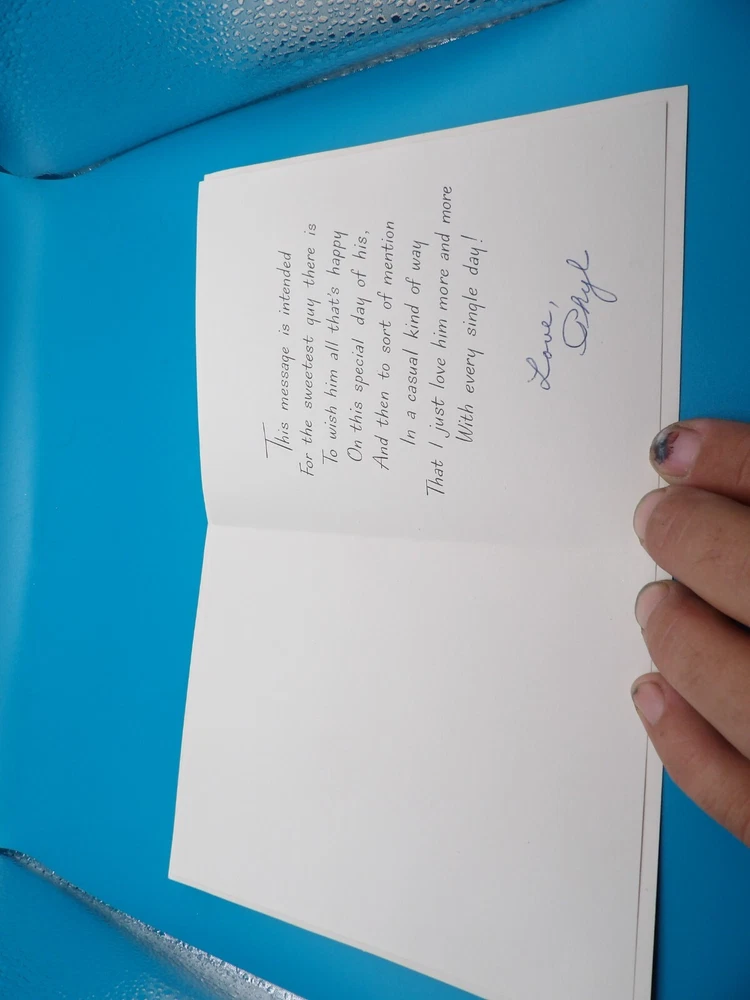 This message is intended
For the sweetest guy there is
To wish him all that's happy
On this special day of his,
And then to sort of mention
In a casual kind of way
That I just love him more and more
With every single day!
Love,
Phyl